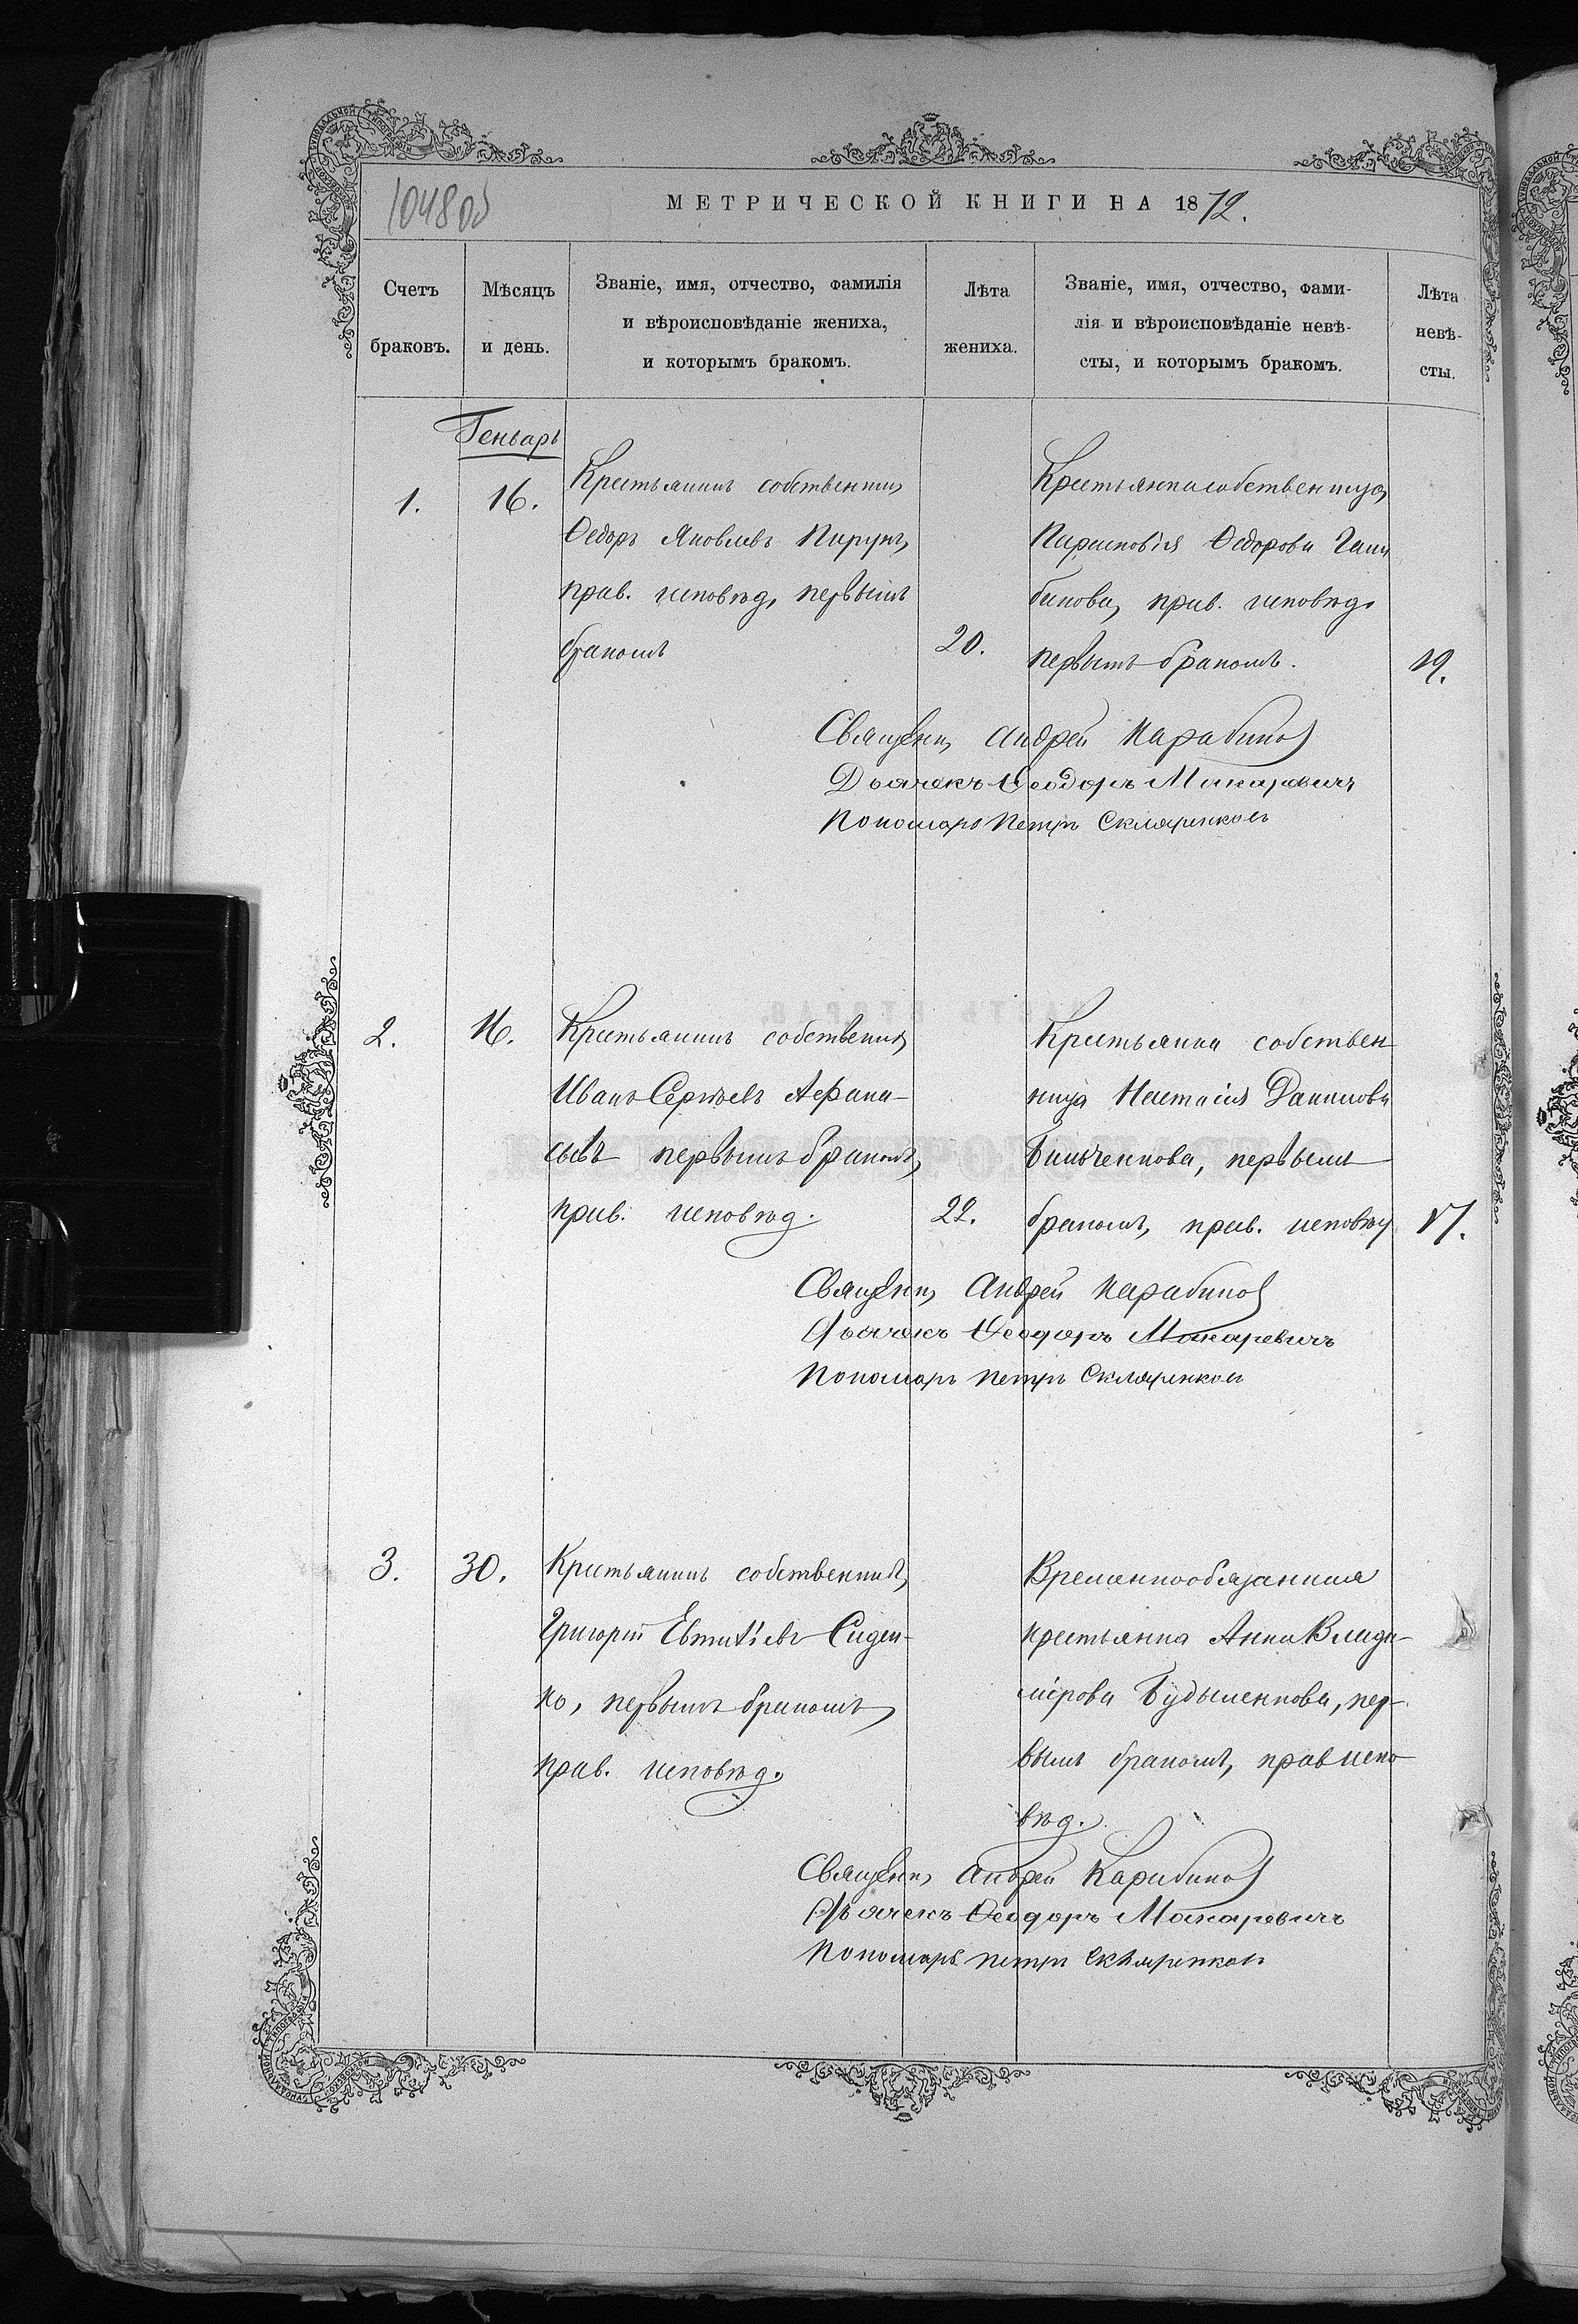 104805
МЕТРИЧЕСКОЙ КНИГИ НА 1872.
Счетъ браковъ.
Мѣсяцъ и день.
Званіе, имя, отчество, фамилія
и вѣроисповѣданіе жениха,
и которымъ бракомъ.
Лѣта жениха.
Званіе, имя, отчество, фами-
лія и вѣроисповѣданіе невѣ-
сты, и которымъ бракомъ.
Лѣта невѣ-
сты.
Генварь
1.
16.
Крестьянинъ собственник
Ѳедоръ Яковлевъ Пирун
прав. исповѣд, первымъ
бракомъ
20.
Крестьянка собственница
Парасковія Ѳедорова
бинова, прав. исповѣд.
первымъ бракомъ.
19.
Священ Андрей Карабинов
Дьячекъ Ѳеодоръ Макаревичъ
Пономарь Петръ Скляренков
2.
16.
Крестьянинъ собственник
Иванъ Сергѣевъ Афана-
сьевъ первымъ бракомъ,
прав. исповѣд.
22.
Крестьянка собствен
ница Настасія Данилова
Бильченкова, первымъ
бракомъ, прав. исповѣд
17.
Священ Андрей Карабинов
Дьячекъ Ѳеодоръ Макаревичъ
Пономарь Петръ Скляренков
3.
30.
Крестьянинъ собственник
Григорій Евтихіевъ Сиден-
ко, первымъ бракомъ,
прав. исповѣд.
Временнообязанная
крестьянка Анна Влади-
мірова Будыменкова, пер-
вымъ бракомъ, прав испо
вѣд.
Священ Андрей Карабинов
Дьячекъ Ѳеодоръ Макаревичъ
Пономарь Петръ Скляренков